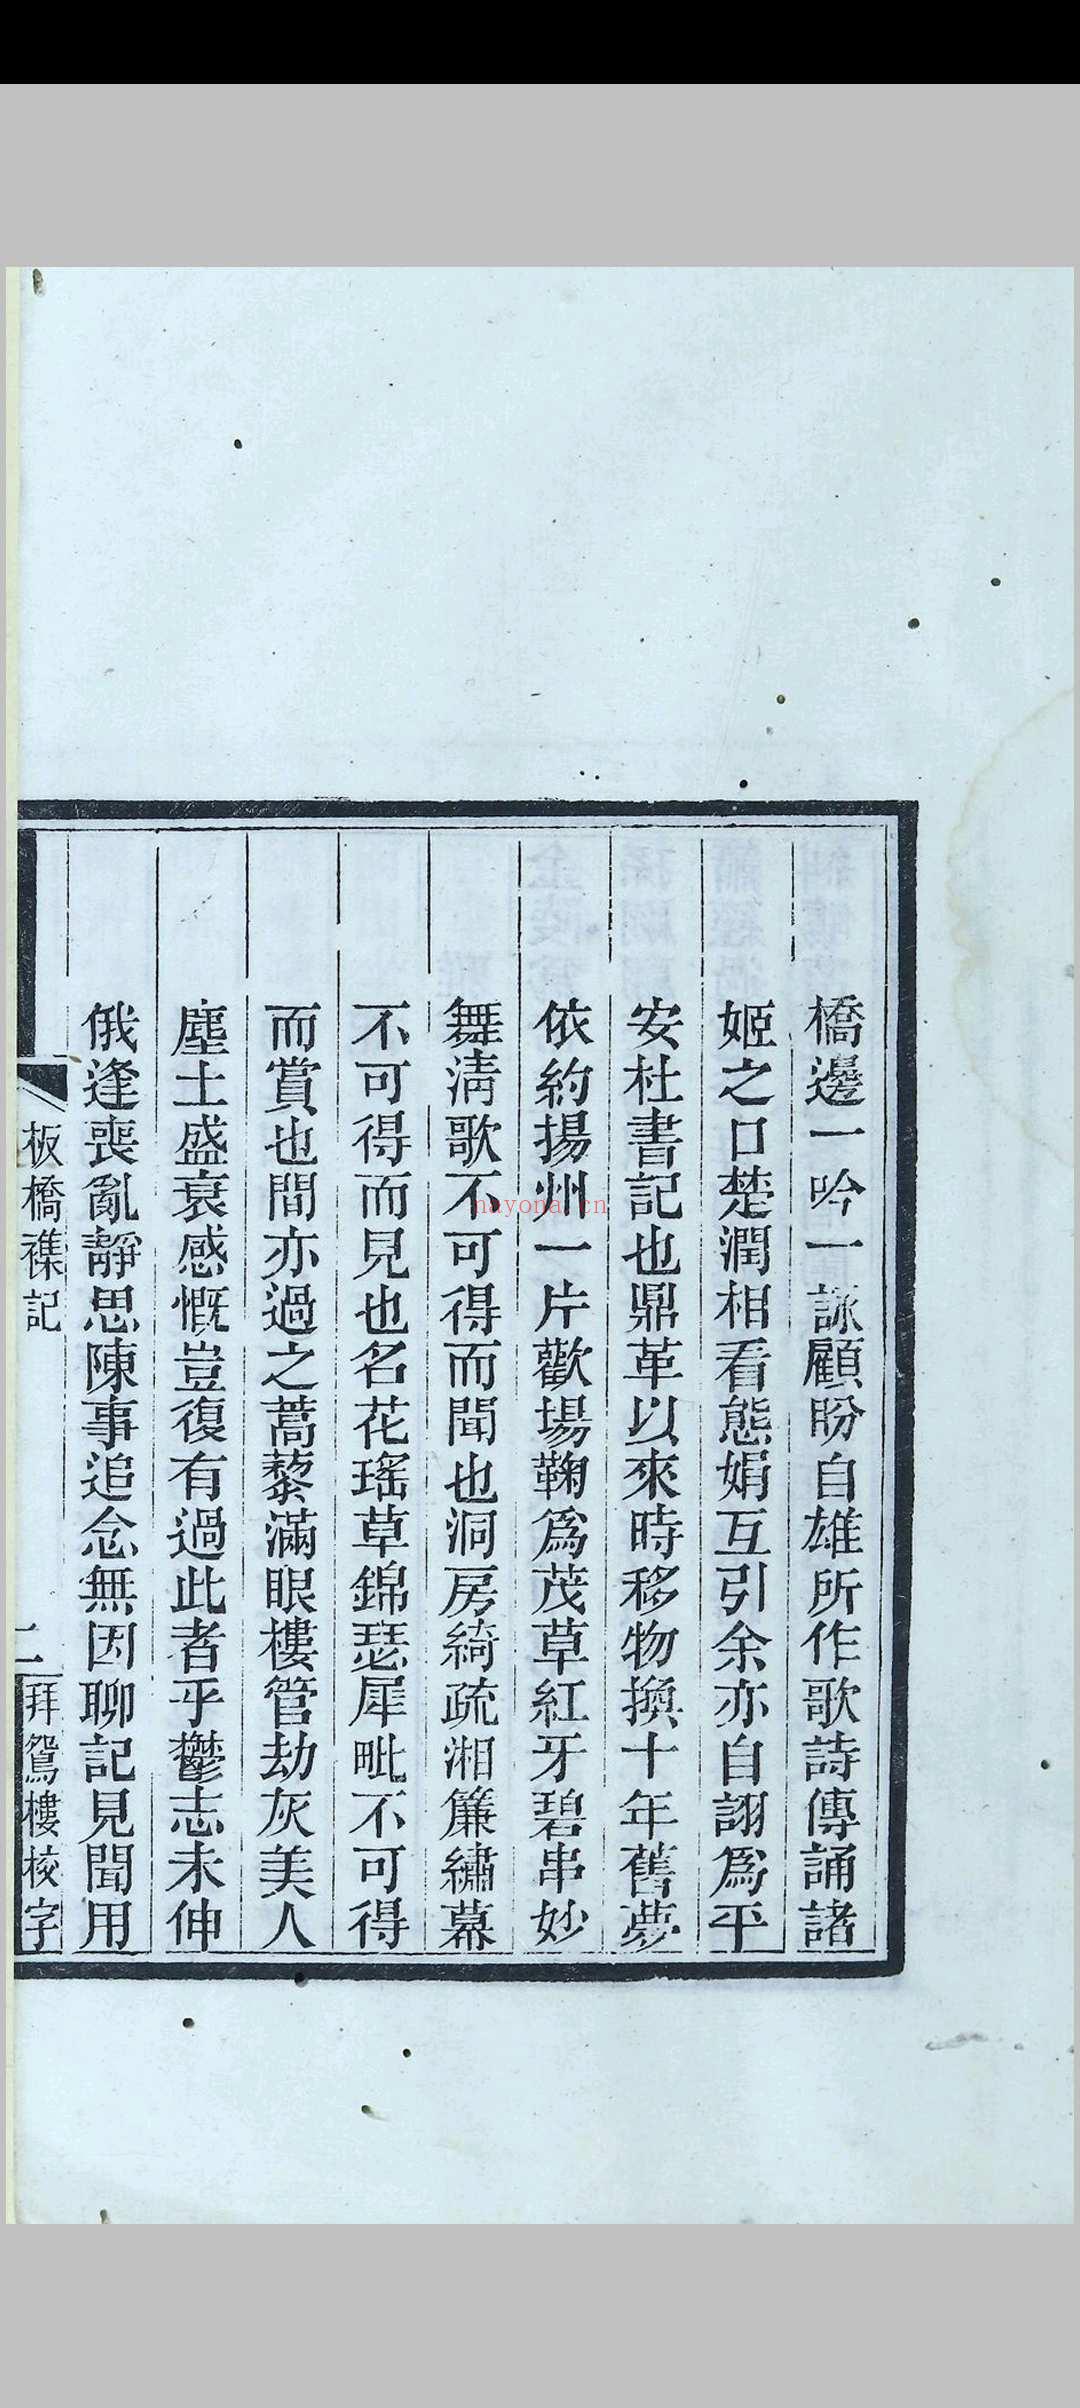 橋邊一吟一詠顧盼自雄所作歌詩傳誦諸
姬之口楚潤相看態娟互引余亦自詡爲平
安杜書記也鼎革以來時移物換十年舊夢
依約揚州一片歡場鞠爲茂草紅牙碧串妙
舞淸歌不可得而聞也洞房綺疏湘簾繡幕
不可得而見也名花瑤草錦瑟犀毗不可得
而賞也間亦過之蒿藜滿眼樓管劫灰美人
塵土盛衰感慨豈復有過此者乎鬱志未伸
俄逢喪亂靜思陳事追念無因聊記見聞用
板橋襍記
二
拜鴛樓校字
nayona.cn